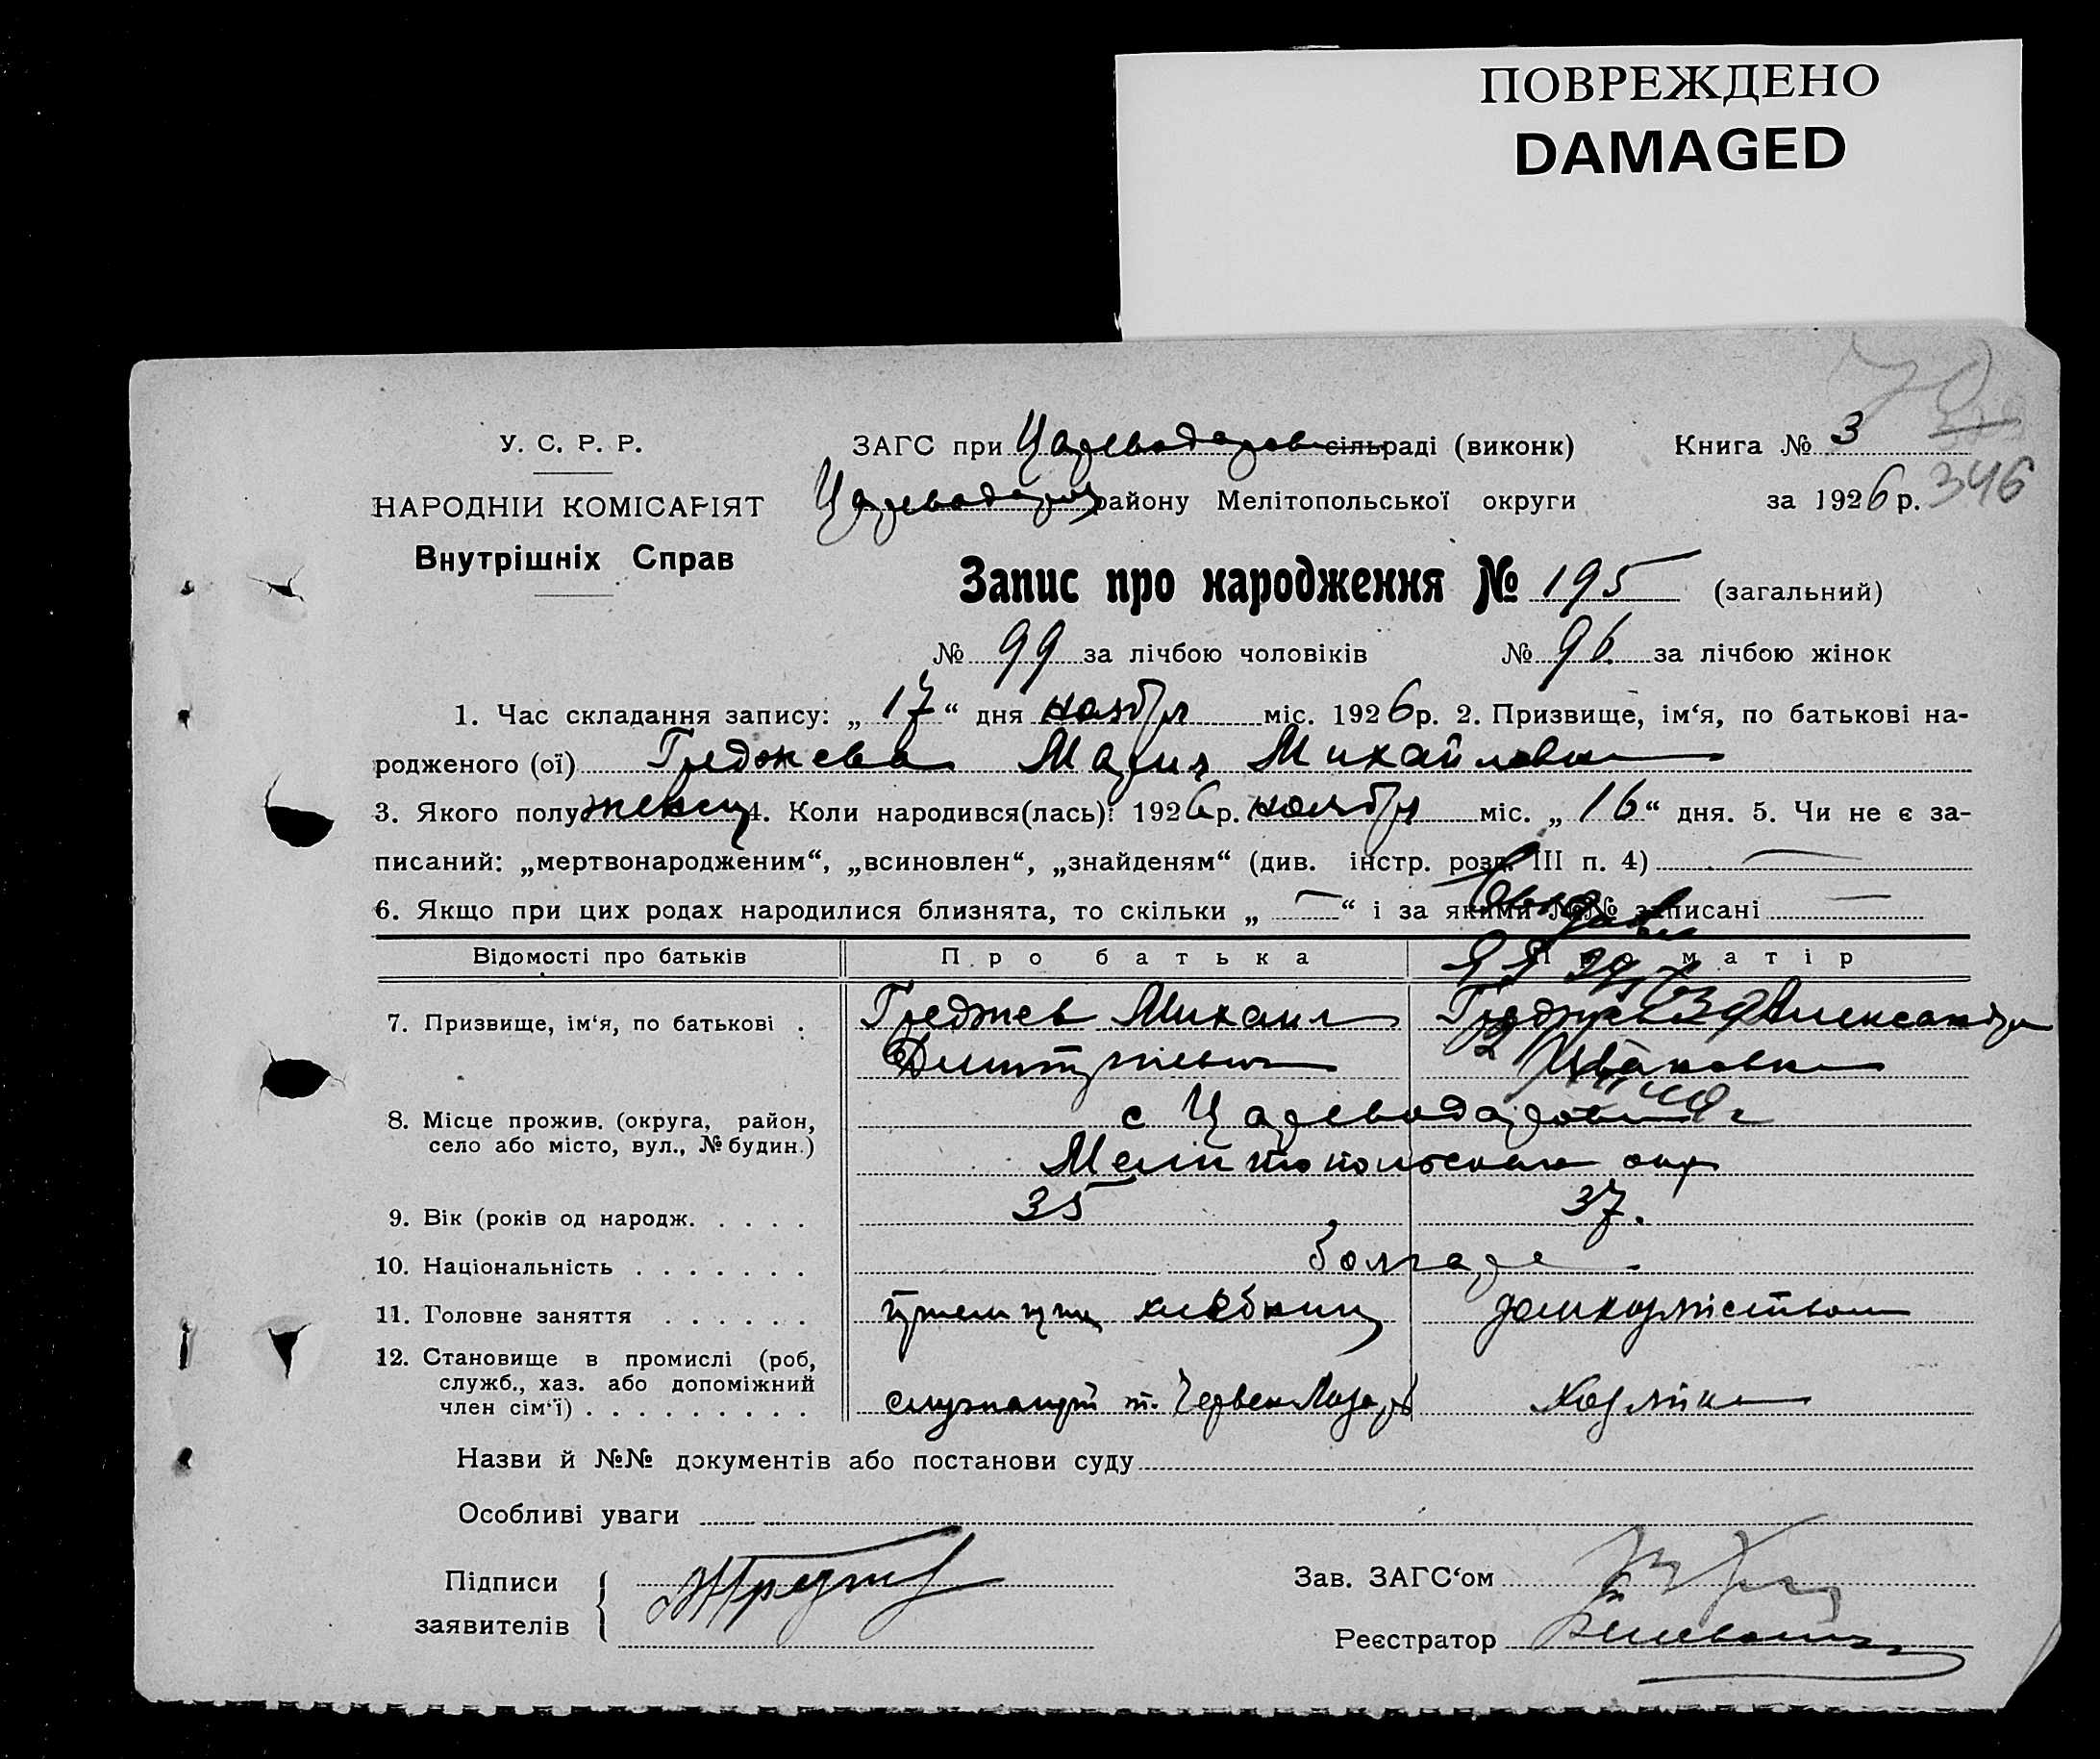 ПОВРЕЖДЕНО
DAMAGED
У. С. Р. Р.
НАРОДНІЙ КОМІСАРІЯТ
Внутрішніх Справ
ЗАГС при Цареводаров сільраді (виконк)
Книга № 3
района Мелітопольської округи
за 1926 р.
346
Запис про народження № 195 (загальний)
№ 99 за лічбою чоловіків № 96 за лічбою жінок
1. Час складання запису: „17“ дня ноября міс. 1926 р. 2. Призвище, ім‘я, по батькові на-
родженого (ої) Греджева Мария Михайловна
3. Якого полу женск 4. Коли народився(лась): 1926 р. ноября міс. „16“ дня. 5. Чи не є за-
писаний: „мертвонародженим“, „всиновлен“, „знайденям“ (див. інстр. розд. III п. 4)
6. Якщо при цих родах народилися близнята, то скільки „ — “ і за якими №№ записані —
Відомості про батьків
Про батька
Про матір
7. Призвище, ім‘я, по батькові .
Греджев Михаил
Дмитриевич
Греджева Александра
Ивановна
8. Місце прожив. (округа, район,
село або місто, вул., № будин.)
с Цареводаровка
Мелитопольская окр
9. Вік (років од народж. . . . .
35
37.
10. Національність . . . . . . .
болгаре
11. Головне заняття . . . . . .
12. Становище в промислі (роб,
служб., хаз. або допоміжний
член сім‘ї) . . . . . . . . .
Назви й №№ документів або постанови суду
Особливі уваги
Підписи
заявителів
Зав. ЗАГС‘ом
Реєстратор